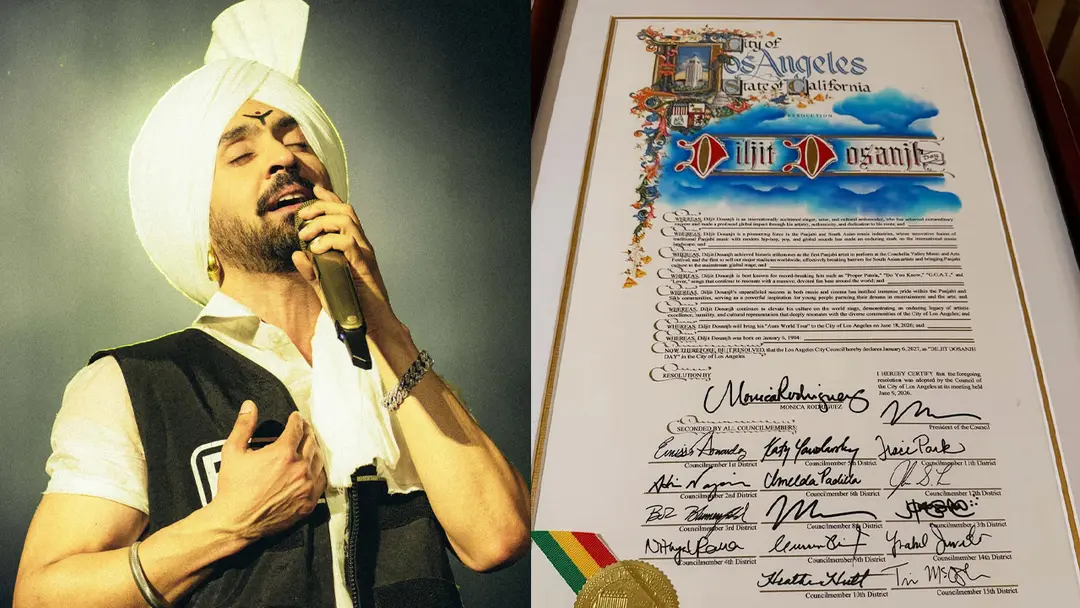 City of
Los Angeles
State of California
RESOLUTION
Diljit Dosanjh
Day
WHEREAS, Diljit Dosanjh is an internationally acclaimed singer, actor, and cultural ambassador, who has achieved extraordinary
success and made a profound global impact through his artistry, authenticity, and dedication to his roots; and
WHEREAS, Diljit Dosanjh is a pioneering force in the Punjabi and South Asian music industries, whose innovative fusion of
traditional Punjabi music with modern hip-hop, pop, and global sounds has made an enduring mark on the international music
landscape; and
WHEREAS, Diljit Dosanjh achieved historic milestones as the first Punjabi artist to perform at the Coachella Valley Music and Arts
Festival, and the first to sell out major stadiums worldwide, effectively breaking barriers for South Asian artists and bringing Punjabi
culture to the mainstream global stage; and
WHEREAS, Diljit Dosanjh is best known for record-breaking hits such as "Proper Patola," "Do You Know," "G.O.A.T.," and
"Lover," songs that continue to resonate with a massive, devoted fan base around the world; and
WHEREAS, Diljit Dosanjh's unparalleled success in both music and cinema has instilled immense pride within the Punjabi and
Sikh communities, serving as a powerful inspiration for young people pursuing their dreams in entertainment and the arts; and
WHEREAS, Diljit Dosanjh continues to elevate his culture on the world stage, demonstrating an enduring legacy of artistic
excellence, humility, and cultural representation that deeply resonates with the diverse communities of the City of Los Angeles; and
WHEREAS, Diljit Dosanjh will bring his "Aura World Tour" to the City of Los Angeles on June 18, 2026; and
WHEREAS, Diljit Dosanjh was born on January 6, 1984:
NOW THEREFORE, BE IT RESOLVED, that the Los Angeles City Council hereby declares January 6, 2027, as "DILJIT DOSANJH
DAY" in the City of Los Angeles
RESOLUTION BY
Monica Rodriguez
MONICA RODRIGUEZ
I HEREBY CERTIFY that the foregoing
resolution was adopted by the Council
of the City of Los Angeles at its meeting held
June 9, 2026.
President of the Council
SECONDED BY ALL COUNCILMEMBERS
Councilmember 1st District
Katy Yaroslavsky
Councilmember 5th District
Councilmember 11th District
Councilmember 2nd District
Imelda Padilla
Councilmember 6th District
Councilmember 12th District
Bob Blumenfield
Councilmember 3rd District
Councilmember 8th District
Councilmember 13th District
Nithya Raman
Councilmember 4th District
Councilmember 9th District
Ysabel Jurado
Councilmember 14th District
Heather Hutt
Councilmember 10th District
Tim McOsker
Councilmember 15th District